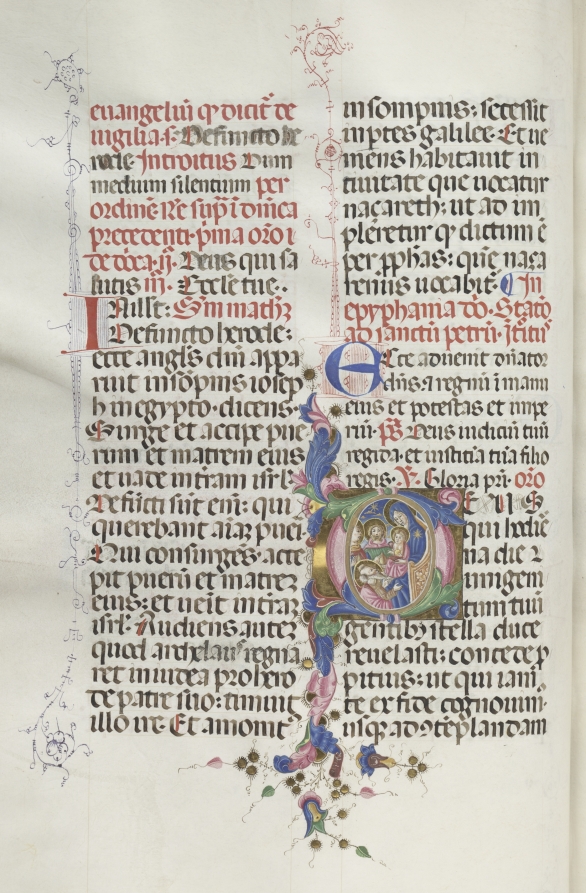 euangeliū q̄ dicit̄ de
uigilia · s · Defuncto he
rode · Introitus Dum
medium silentium per
ordinē Rē sup̄ ī dn̄ica
precedenti · p̄ma or̄o ī
de dc̄a · ij · Deus qui sa
lutis iij · Eccl̄e tue ·
In illst̄ : Sm̄ mathz
Defuncto herode :
ecce angl̄s dn̄i appa
ruit in sōpnis iosep
h in egypto · dicens ·
Surge et accipe pue
rum et matrem eius
et uade in t̄ram isr̄l ·
Defūcti sūt em̄ : qui
querebant aīaz pueri ·
Qui consurgēs · acce
pit puerū et matrez
eius : et uēit in t̄raz
isr̄l · Audiens autez
quod archelaus regna
ret in iudea pro hero
de patre suo : timuit
illo ire · Et amonit
in sompnis : secessit
in p̄tes galilee · Et ue
niens habitauit in
ciuitate que uocatur
naçareth : ut ad im
pleretur q̄ dictum ē
per p̄phās : qm̄ naça
renus uocabit̄ · In
epyphania dn̄i · Statō
ad sanctū petrū · Itroit̄
Ecce aduenit dn̄ator
dn̄s · ⁊ regnū ī manu
eius et potestas et impe
riū · p̄s Deus iudiciū tuū
regi da · et iustitiā tuā filio
regis · V̄ · Gloria pr̄i · or̄o
Deus
qui hodie
rna die u
nigeni
tum tuū
gentibꝫ stella duce
reuelasti : concede p̄
pitius : ut qui iam
te ex fide cognouim̄ ·
usqꝫ ad ꝯtēplandam